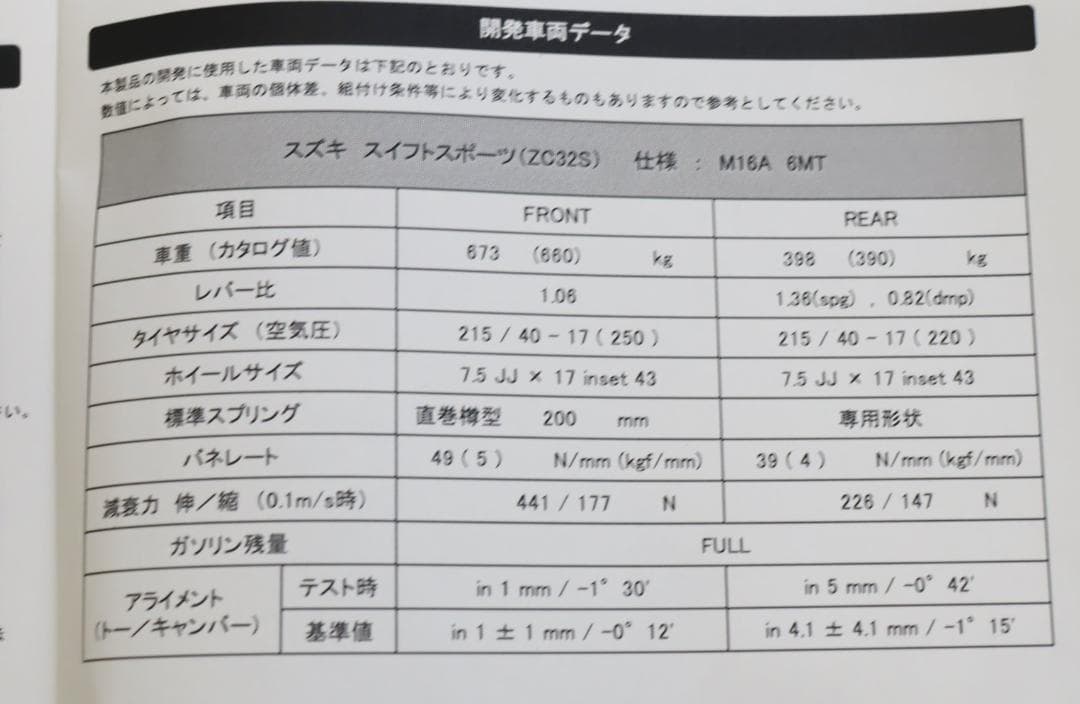 開発車両データ
本製品の開発に使用した車両データは下記のとおりです。
数値によっては、車両の個体差、組付け条件等により変化するものもありますので参考としてください。
スズキ スイフトスポーツ(ZC32S) 仕様 : M16A 6MT
項目 FRONT REAR
車重 (カタログ値) 673 (660) kg 398 (390) kg
レバー比 1.06 1.36(spg) , 0.82(dmp)
タイヤサイズ (空気圧) 215 / 40 - 17 ( 250 ) 215 / 40 - 17 ( 220 )
ホイールサイズ 7.5 JJ × 17 inset 43 7.5 JJ × 17 inset 43
標準スプリング 直巻樽型 200 mm 専用形状
バネレート 49 ( 5 ) N/mm (kgf/mm) 39 ( 4 ) N/mm (kgf/mm)
減衰力 伸/縮 (0.1m/s時) 441 / 177 N 226 / 147 N
ガソリン残量 FULL
アライメント
(トー/キャンバー)
テスト時 in 1 mm / -1° 30' in 5 mm / -0° 42'
基準値 in 1 ± 1 mm / -0° 12' in 4.1 ± 4.1 mm / -1° 15'
い。